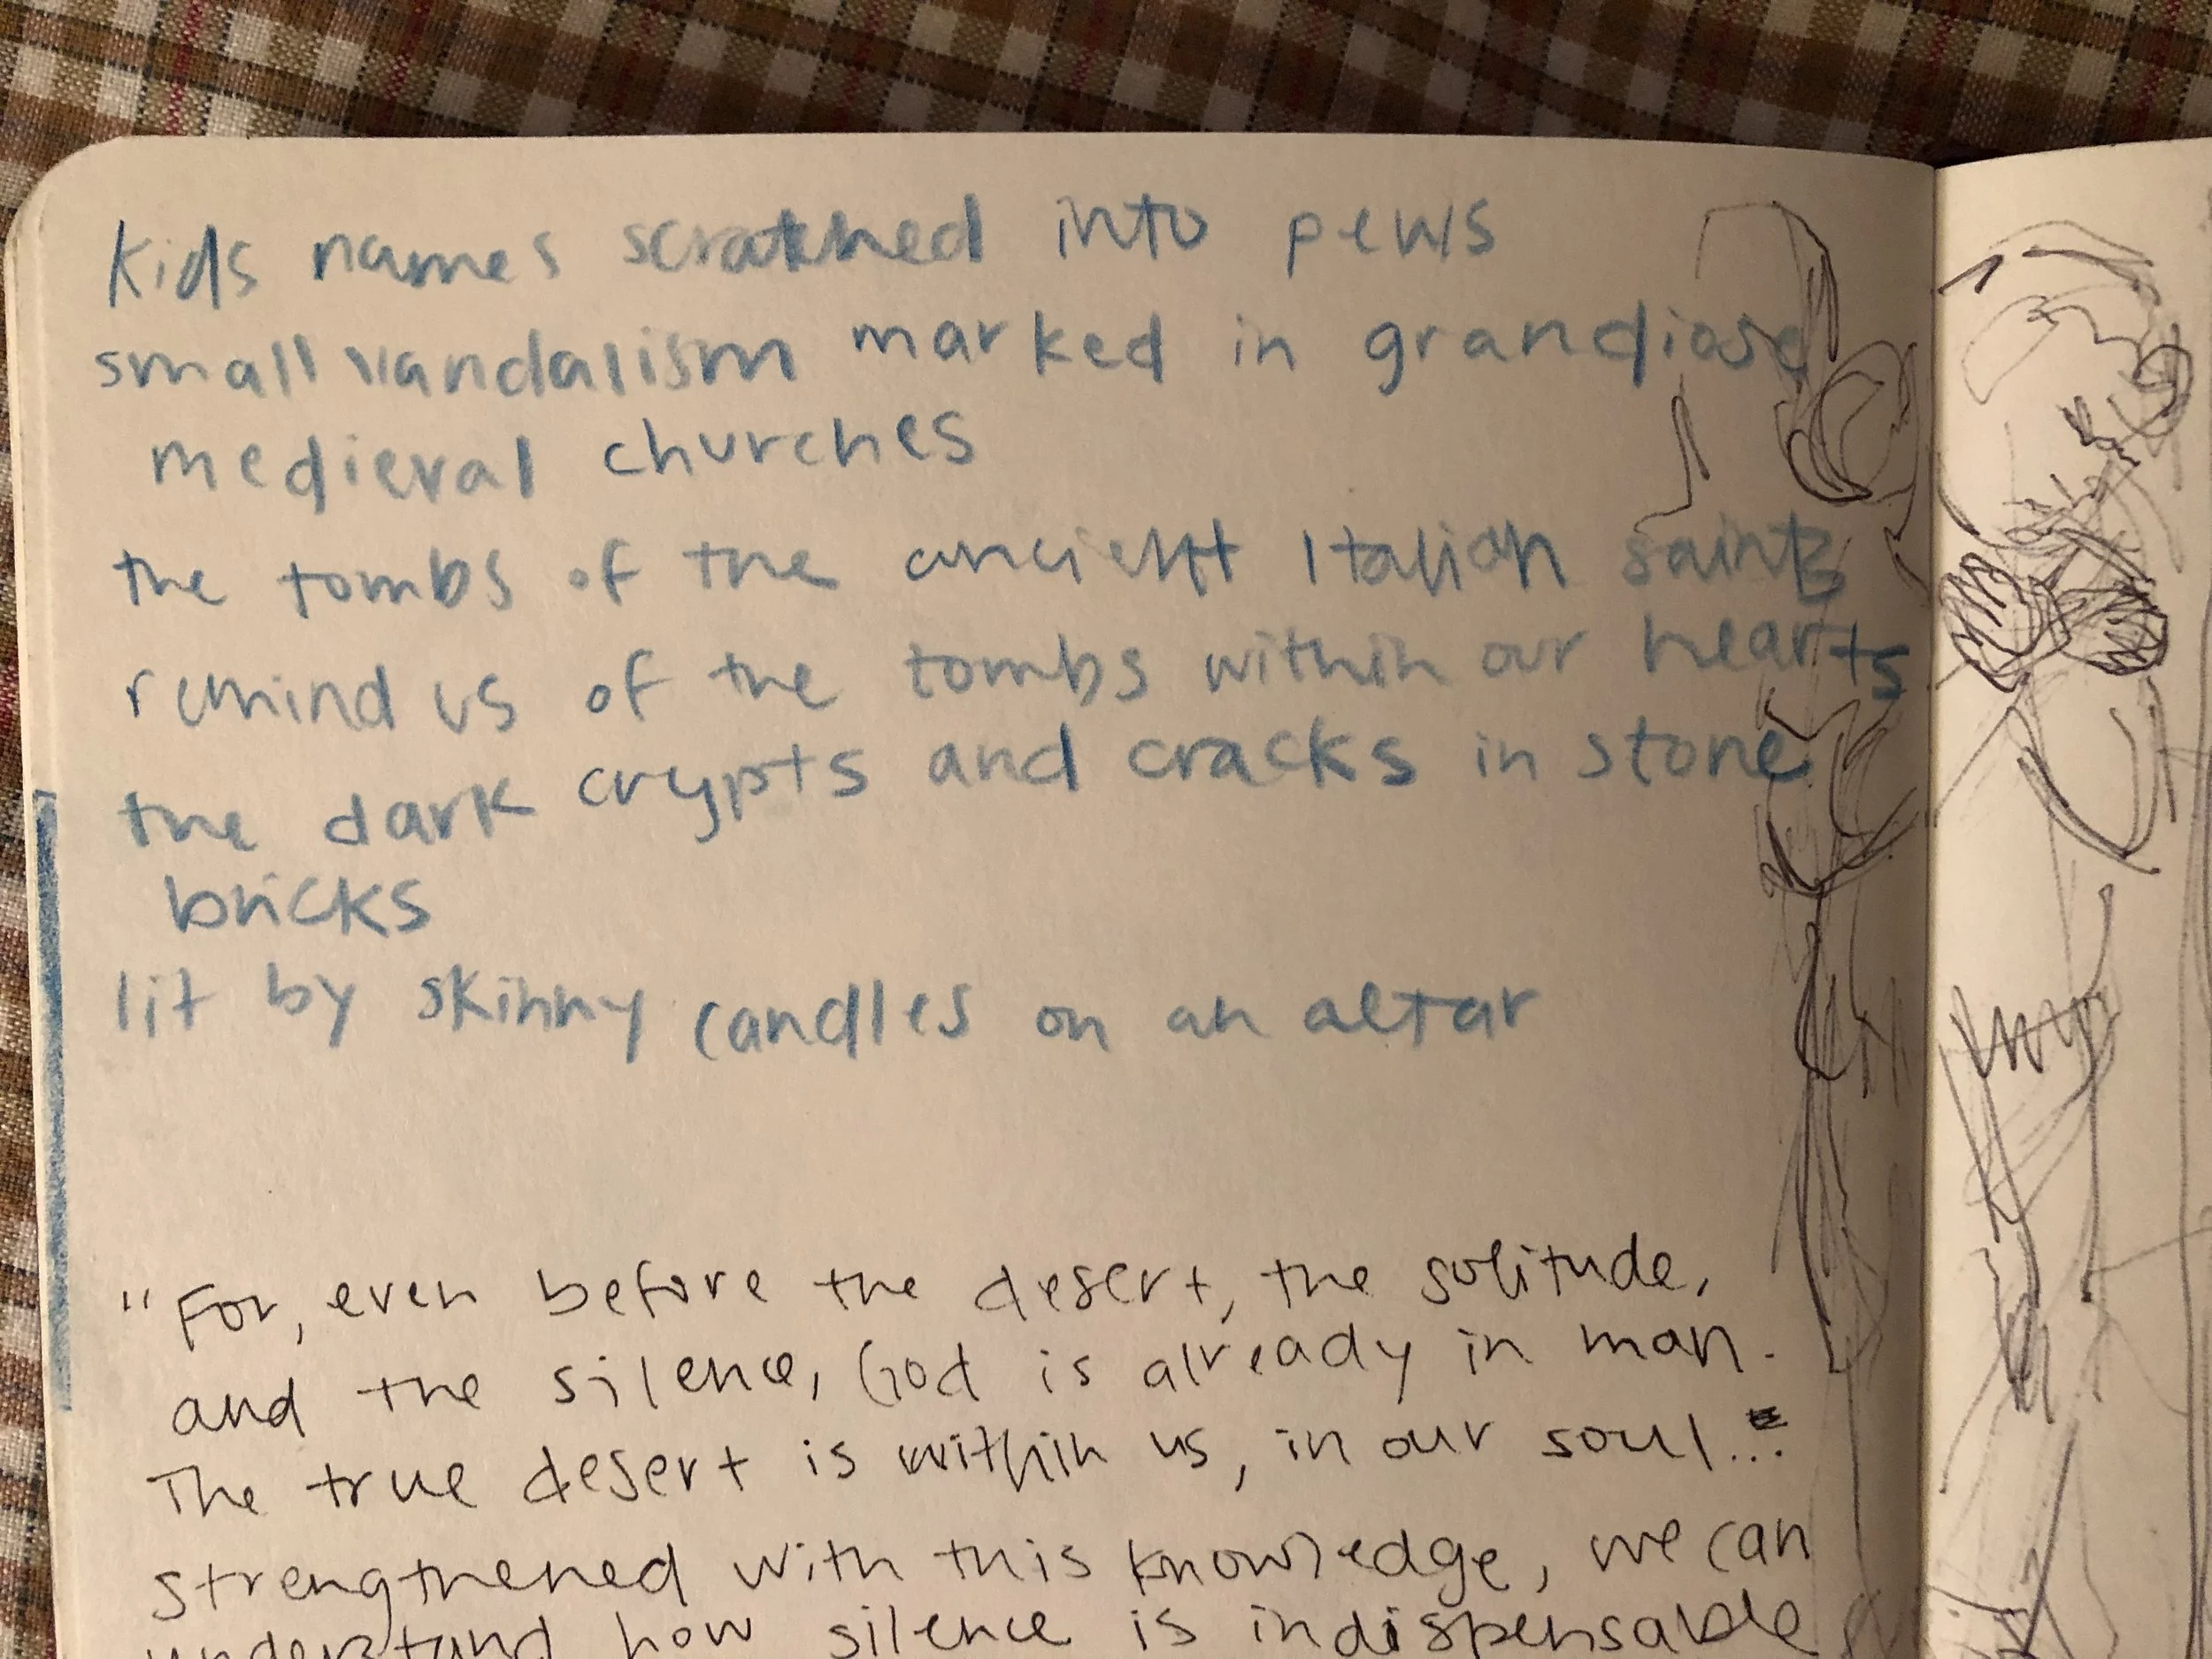 Kids names scratched into pews
small vandalism marked in grandiose
medieval churches
the tombs of the ancient Italian saints
remind us of the tombs within our hearts
the dark crypts and cracks in stone
bricks
lit by skinny candles on an altar
"For, even before the desert, the solitude,
and the silence, God is already in man.
The true desert is within us, in our soul...
strengthened with this knowledge, we can
understand how silence is indispensable